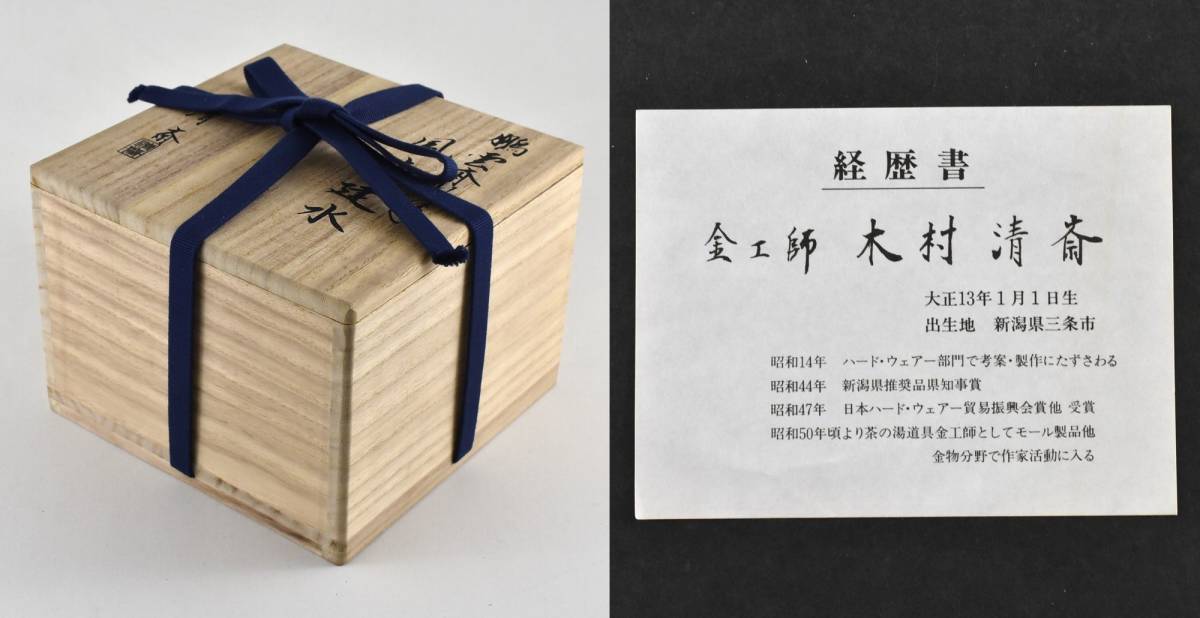 鵬雲斎
建水
斎
経歴書
金工師 木村清斎
大正13年1月1日生
出生地 新潟県三条市
昭和14年 ハード・ウェアー部門で考案・製作にたずさわる
昭和44年 新潟県推奨品県知事賞
昭和47年 日本ハード・ウェアー貿易振興会賞他 受賞
昭和50年頃より茶の湯道具金工師としてモール製品他
金物分野で作家活動に入る